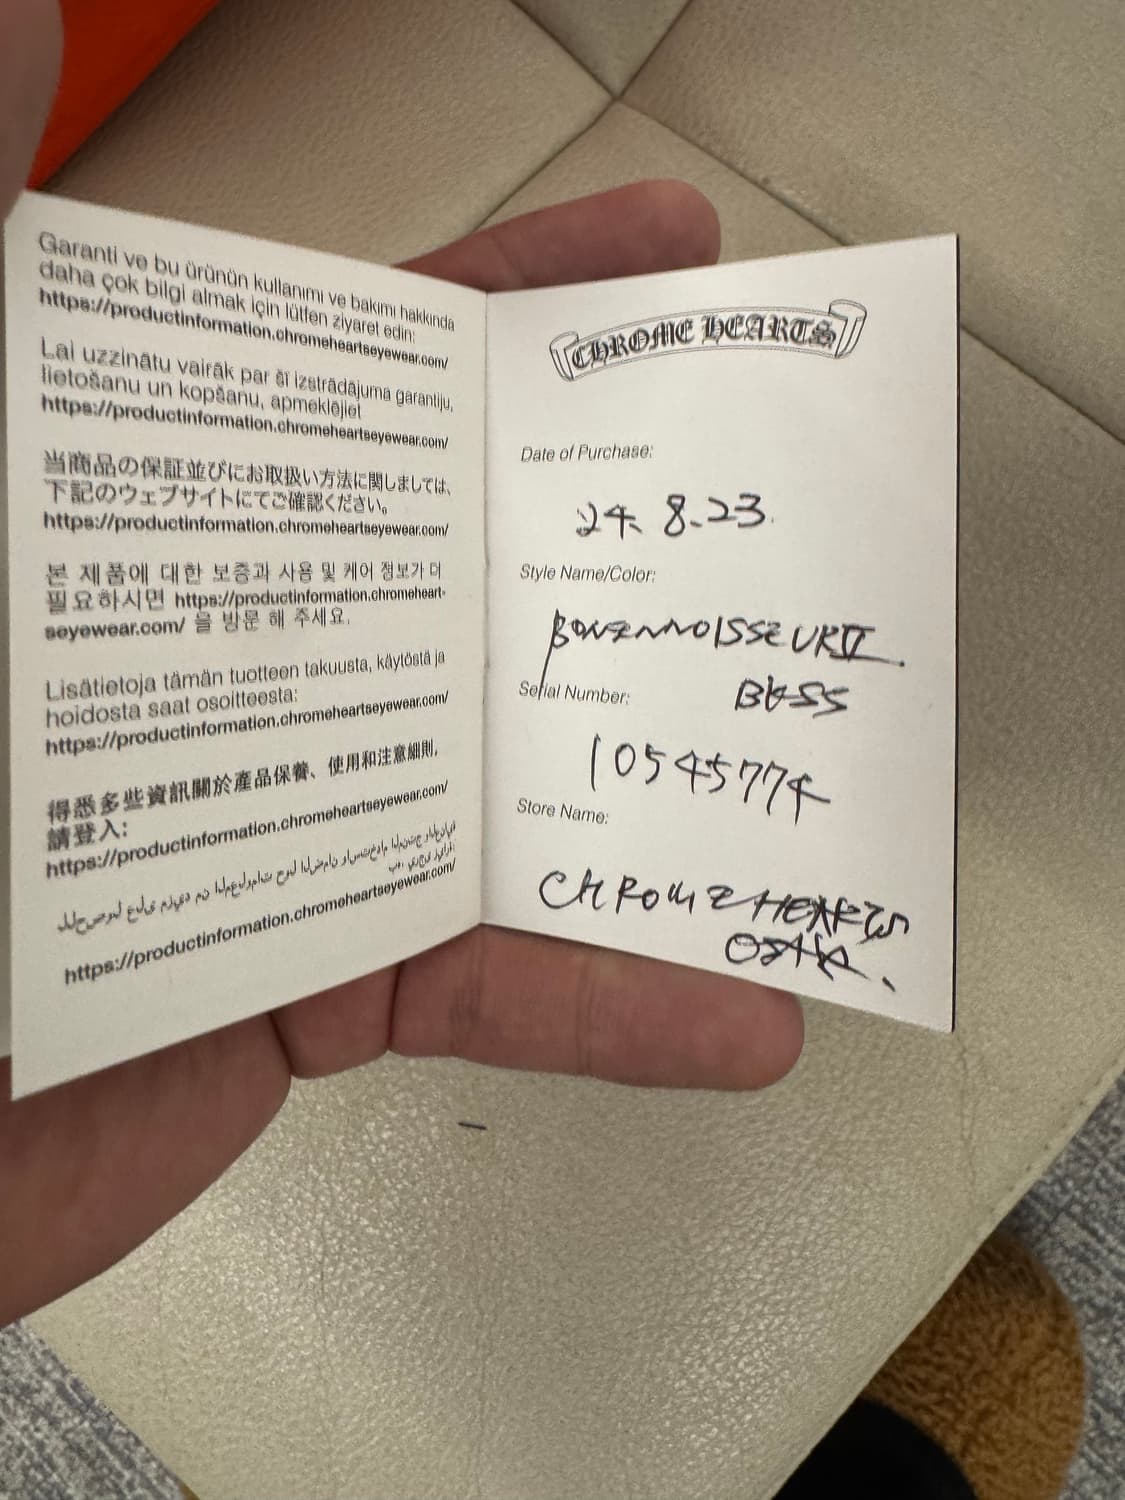 Garanti ve bu ürünün kullanımı ve bakımı hakkında
daha çok bilgi almak için lütfen ziyaret edin:
https://productinformation.chromeheartseyewear.com/
Lai uzzinātu vairāk par šī izstrādājuma garantiju,
lietošanu un kopšanu, apmeklējiet
https://productinformation.chromeheartseyewear.com/
当商品の保証並びにお取扱い方法に関しましては、
下記のウェブサイトにてご確認ください。
https://productinformation.chromeheartseyewear.com/
본 제품에 대한 보증과 사용 및 케어 정보가 더
필요하시면 https://productinformation.chromeheart-
seyewear.com/ 을 방문 해 주세요.
Lisätietoja tämän tuotteen takuusta, käytöstä ja
hoidosta saat osoitteesta:
https://productinformation.chromeheartseyewear.com/
得悉多些資訊關於產品保養、使用和注意細則,
請登入:
https://productinformation.chromeheartseyewear.com/
للحصول على مزيد من المعلومات حول الضمان واستخدام المنتج والعناية
به، يرجى زيارة:
https://productinformation.chromeheartseyewear.com/
CHROME HEARTS
Date of Purchase:
24. 8. 23.
Style Name/Color:
BONENNOISSEUR II
Serial Number:
10545774
Store Name:
CHROME HEARTS
OSAKA.